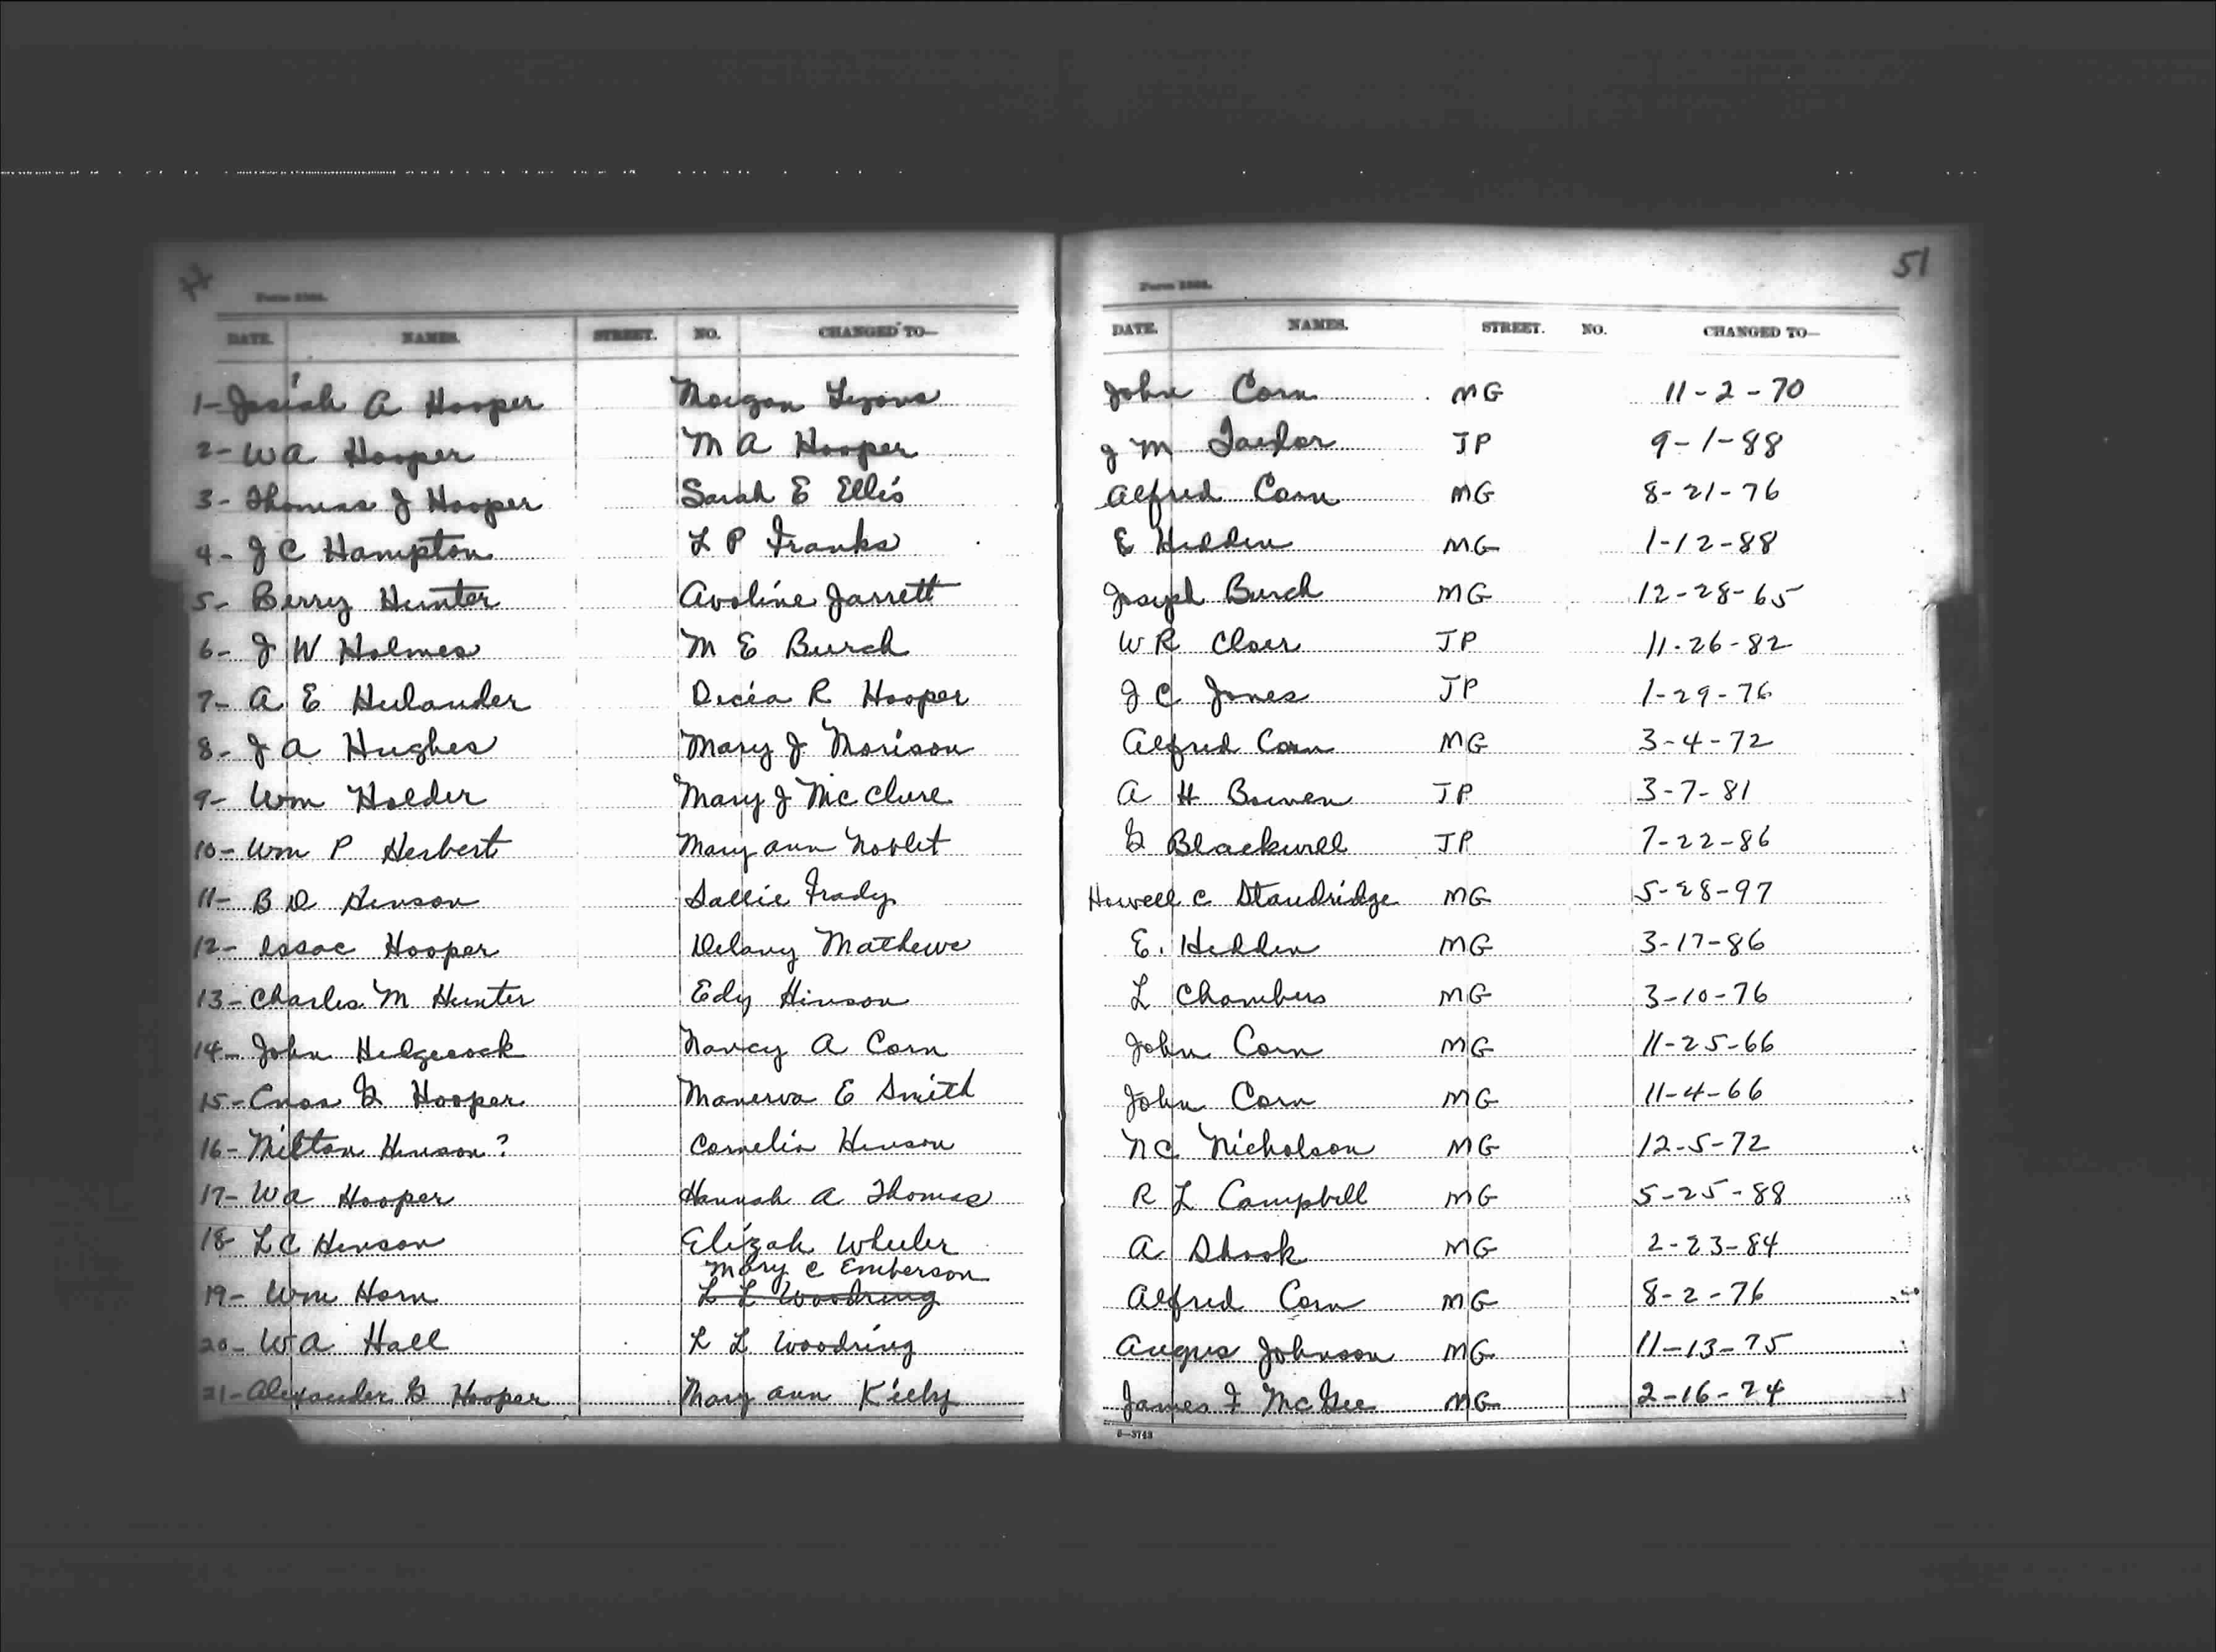 H 51
Form 1503. Form 1503.
DATE. NAMES. STREET. NO. CHANGED TO— DATE. NAMES. STREET. NO. CHANGED TO—
1- Josiah A Hooper Morgan Lyons John Corn MG 11-2-70
2- WA Hooper M A Hooper J M Taylor JP 9-1-88
3- Thomas J Hooper Sarah E Ellis Alfred Corn MG 8-21-76
4- J C Hampton L P Franks E Hedden MG 1-12-88
5- Berry Hunter Avoline Jarrett Joseph Burch MG 12-28-65
6- J W Holmes M E Burch W R Cloer JP 11-26-82
7- A E Hulander Decia R Hooper J C Jones JP 1-29-76
8- J A Hughes Mary J Morison Alfred Corn MG 3-4-72
9- Wm Holder Mary J McClure A H Bowen JP 3-7-81
10- Wm P Herbert Mary ann Noblet G Blackwell JP 7-22-86
11- B D Henson Sallie Frady Howell C Standridge MG 5-28-97
12- Issac Hooper Delany Mathews E. Hedden MG 3-17-86
13- Charles M Hunter Edy Hinson L Chambers MG 3-10-76
14- John Hedgecock Nancy A Corn John Corn MG 11-25-66
15- Enos G Hooper Manerva E Smith John Corn MG 11-4-66
16- Milton Henson? Cornelia Henson N C Nicholson MG 12-5-72
17- WA Hooper Hannah A Thomas R L Campbell MG 5-25-88
18- L C Henson Elizah Wheeler A Shook MG 2-23-84
Mary C Emberson
19- Wm Horn L L Woodring Alfred Corn MG 8-2-76
20- WA Hall L L Woodring Angus Johnson MG 11-13-75
21- Alexander G Hooper Mary ann Kiely James F McGee MG 2-16-74
6—3743